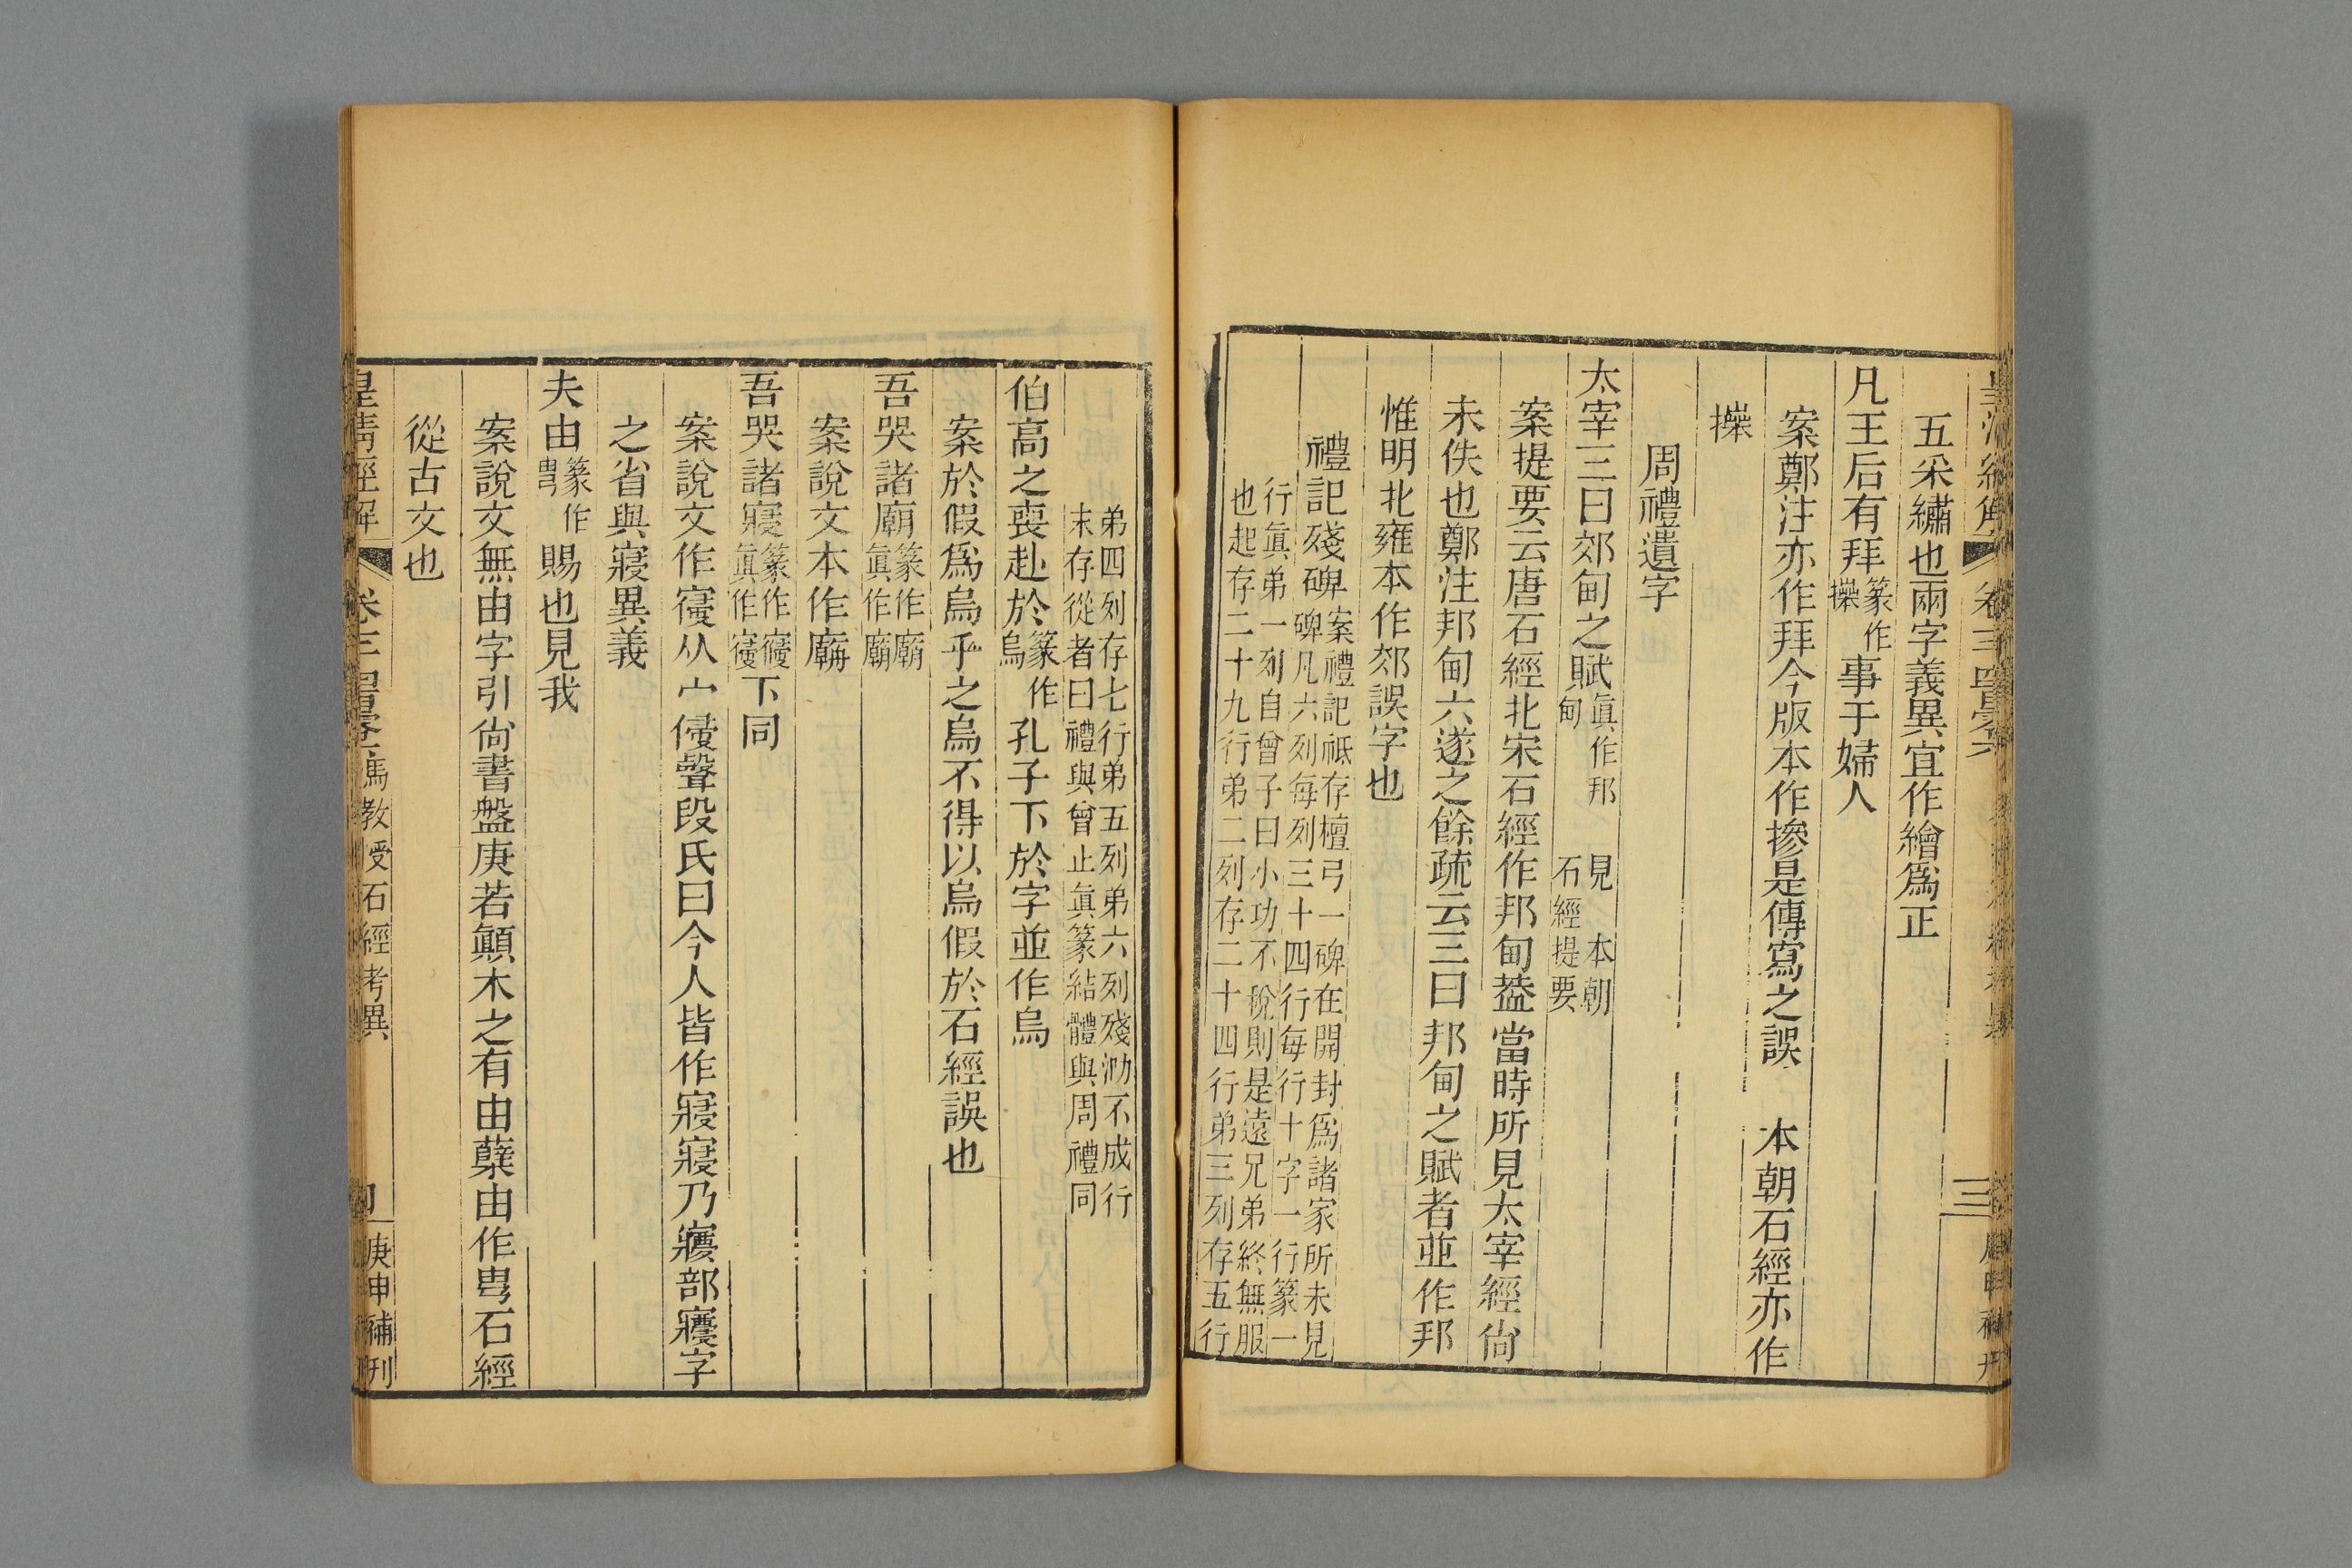 五采繡也兩字義異宜作繪爲正
凡王后有拜篆作𢷎事于婦人
案鄭注亦作拜今版本作摻是傳寫之誤 本朝石經亦作
𢷎
周禮遺字
太宰三曰郊甸之賦眞作邦甸 見 本朝石經提要
案提要云唐石經北宋石經作邦甸葢當時所見太宰經尙
未佚也鄭注邦甸六遂之餘疏云三曰邦甸之賦者並作邦
惟明北雍本作郊誤字也
禮記殘碑案禮記祗存檀弓一碑在開封爲諸家所未見
碑凡六列每列三十四行每行十字一行篆一
行眞弟一列自曾子曰小功不稅則是遠兄弟終無服
也起存二十九行弟二列存二十四行弟三列存五行
弟四列存七行弟五列弟六列殘泐不成行
末存從者曰禮與曾止眞篆結體與周禮同
伯高之喪赴於篆作烏孔子下於字並作烏
案於假爲烏乎之烏不得以烏假於石經誤也
吾哭諸廟篆作廟眞作廟
案說文本作廟
吾哭諸寢篆作寢眞作寑下同
案說文作寑从宀𠊱聲段氏曰今人皆作寢寢乃㝱部㝲字
之省與寢異義
夫由篆作甹賜也見我
案說文無由字引尙書盤庚若顚木之有由蘖由作甹石經
從古文也
皇淸經解 卷三 馮教受石經考異
庚申補刊